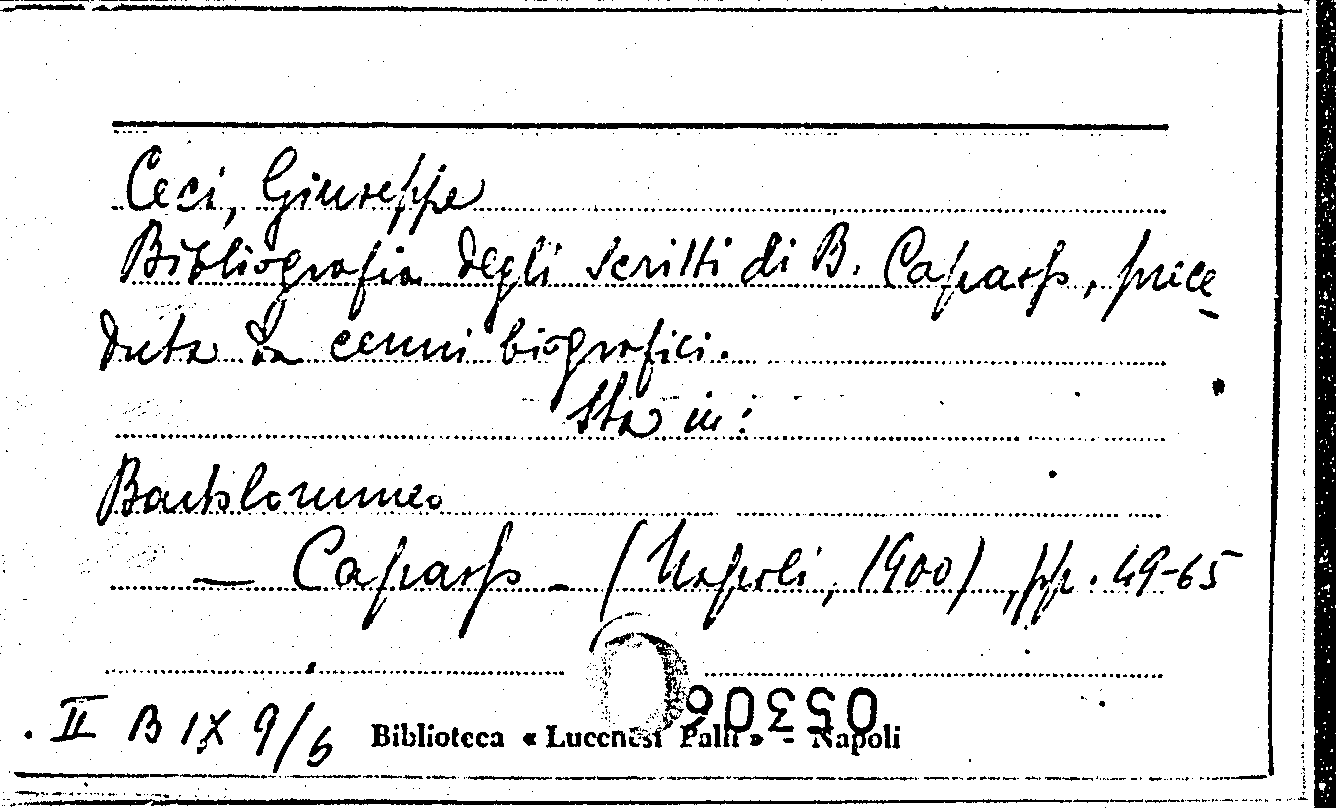 Ceci, Giuseppe
Bibliografia degli scritti di B. Capasso, prece
duta da cenni biografici.
Sta in:
Bartolommeo
— Capasso - (Napoli, 1900), pp. 49-65
05306
II B IX 9/6 Biblioteca « Lucchesi Palli » - Napoli